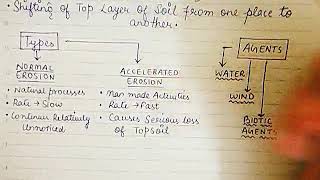 • Shifting of Top Layer of Soil from one place to
another.
Types
AGENTS
NORMAL
EROSION
ACCELERATED
EROSION
WATER
WIND
BIOTIC
AGENTS
• Natural processes
• Rate → Slow
• Continues Relatively
Unnoticed
• Man made Activities
• Rate → Fast
• Causes Serious loss
of Topsoil